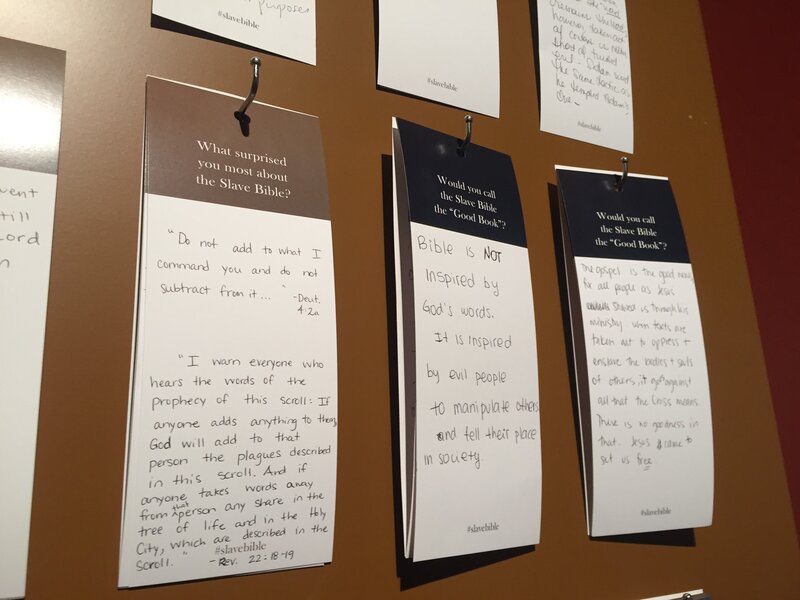 purposes
#slavebible
#slavebible
of context is
the same tactic as
he tempted
#slavebible
What surprised
you most about
the Slave Bible?
"Do not add to what I
command you and do not
subtract from it... "
-Deut.
4:2a
"I warn everyone who
hears the words of the
prophecy of this scroll: If
anyone adds anything to them,
God will add to that
person the plagues described
in this scroll. And if
anyone takes words away
from that person any share in the
tree of life and in the Holy
City, which are described in the
scroll. "
#slavebible
-Rev. 22:18-19
Would you call
the Slave Bible
the "Good Book"?
Bible is NOT
inspired by
God's words.
It is inspired
by evil people
to manipulate others
and tell their place
in society.
#slavebible
Would you call
the Slave Bible
the "Good Book"?
The gospel is the good news
for all people as Jesus
showed is through his
ministry. When texts are
taken out to oppress +
enslave the bodies + souls
of others, it goes against
all that the Cross means.
There is no goodness in
that. Jesus came to
set us free
#slavebible
vent
till
Lord